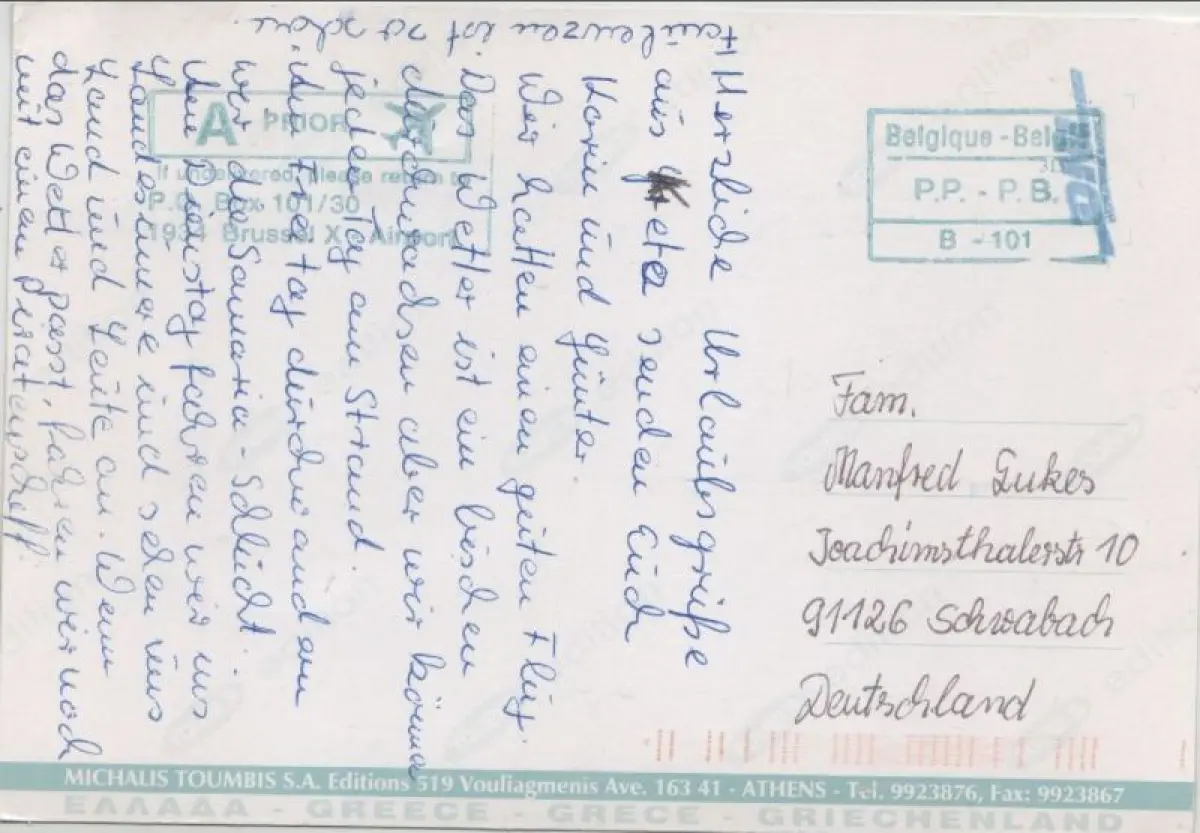 Herzliche Urlaubsgrüße
aus Kreta senden Euch
Karin und Günter.
Wir hatten einen guten Flug.
Das Wetter ist ein bischen
durchwachsen aber wir können
jeden Tag am Strand.
Am Freitag durchwandern
wir die Samaria-Schlucht.
Am Dienstag fahren wir ins
Landesinnere und sehen uns
Land und Leute an. Wenn
das Wetter passt, fahren wir noch
mit einem Piratenschiff.
faulenzen ist so schön.
A PRIOR
If undelivered, please return to
P.O. Box 101/30
1934 Brussel X - Airport
Belgique - Belg
P.P. - P.B.
B - 101
Fam.
Manfred Lukes
Joachimsthalerstr 10
91126 Schwabach
Deutschland
MICHALIS TOUMBIS S.A. Editions 519 Vouliagmenis Ave. 163 41 - ATHENS - Tel. 9923876, Fax: 9923867
ΕΛΛΑΔΑ - GREECE - GRECE - GRIECHENLAND